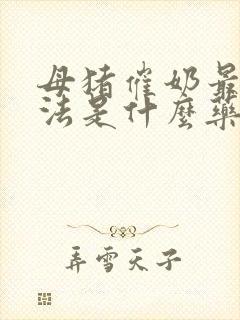 母猪催奶最
法是什麽药
弄雪天子